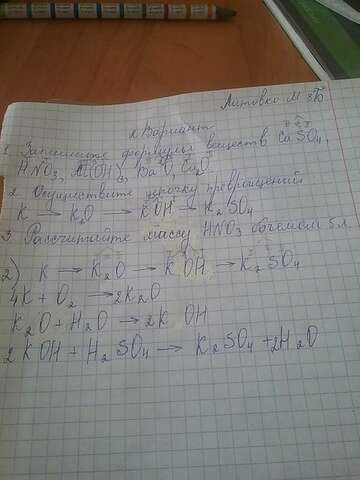 Литовко М 8Б
2 Вариант
1. Запишите формулы веществ CuSO₄,
HNO₃, Al(OH)₃, BaO, Cu₂O.
2. Осуществите цепочку превращений
K → K₂O → KOH → K₂SO₄
3 Рассчитайте массу HNO₃ объемом 5л
2) K → K₂O → KOH → K₂SO₄
4K + O₂ → 2K₂O
K₂O + H₂O → 2K OH
2KOH + H₂SO₄ → K₂SO₄ + 2H₂O